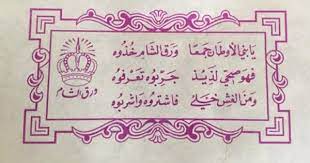 يا بني الأوطان جمعا ورق الشام خذوه
فهو صحي لذيذ جربوه تعرفوه
ومن الغش خلي فاشتروه واشربوه
ورق الشام